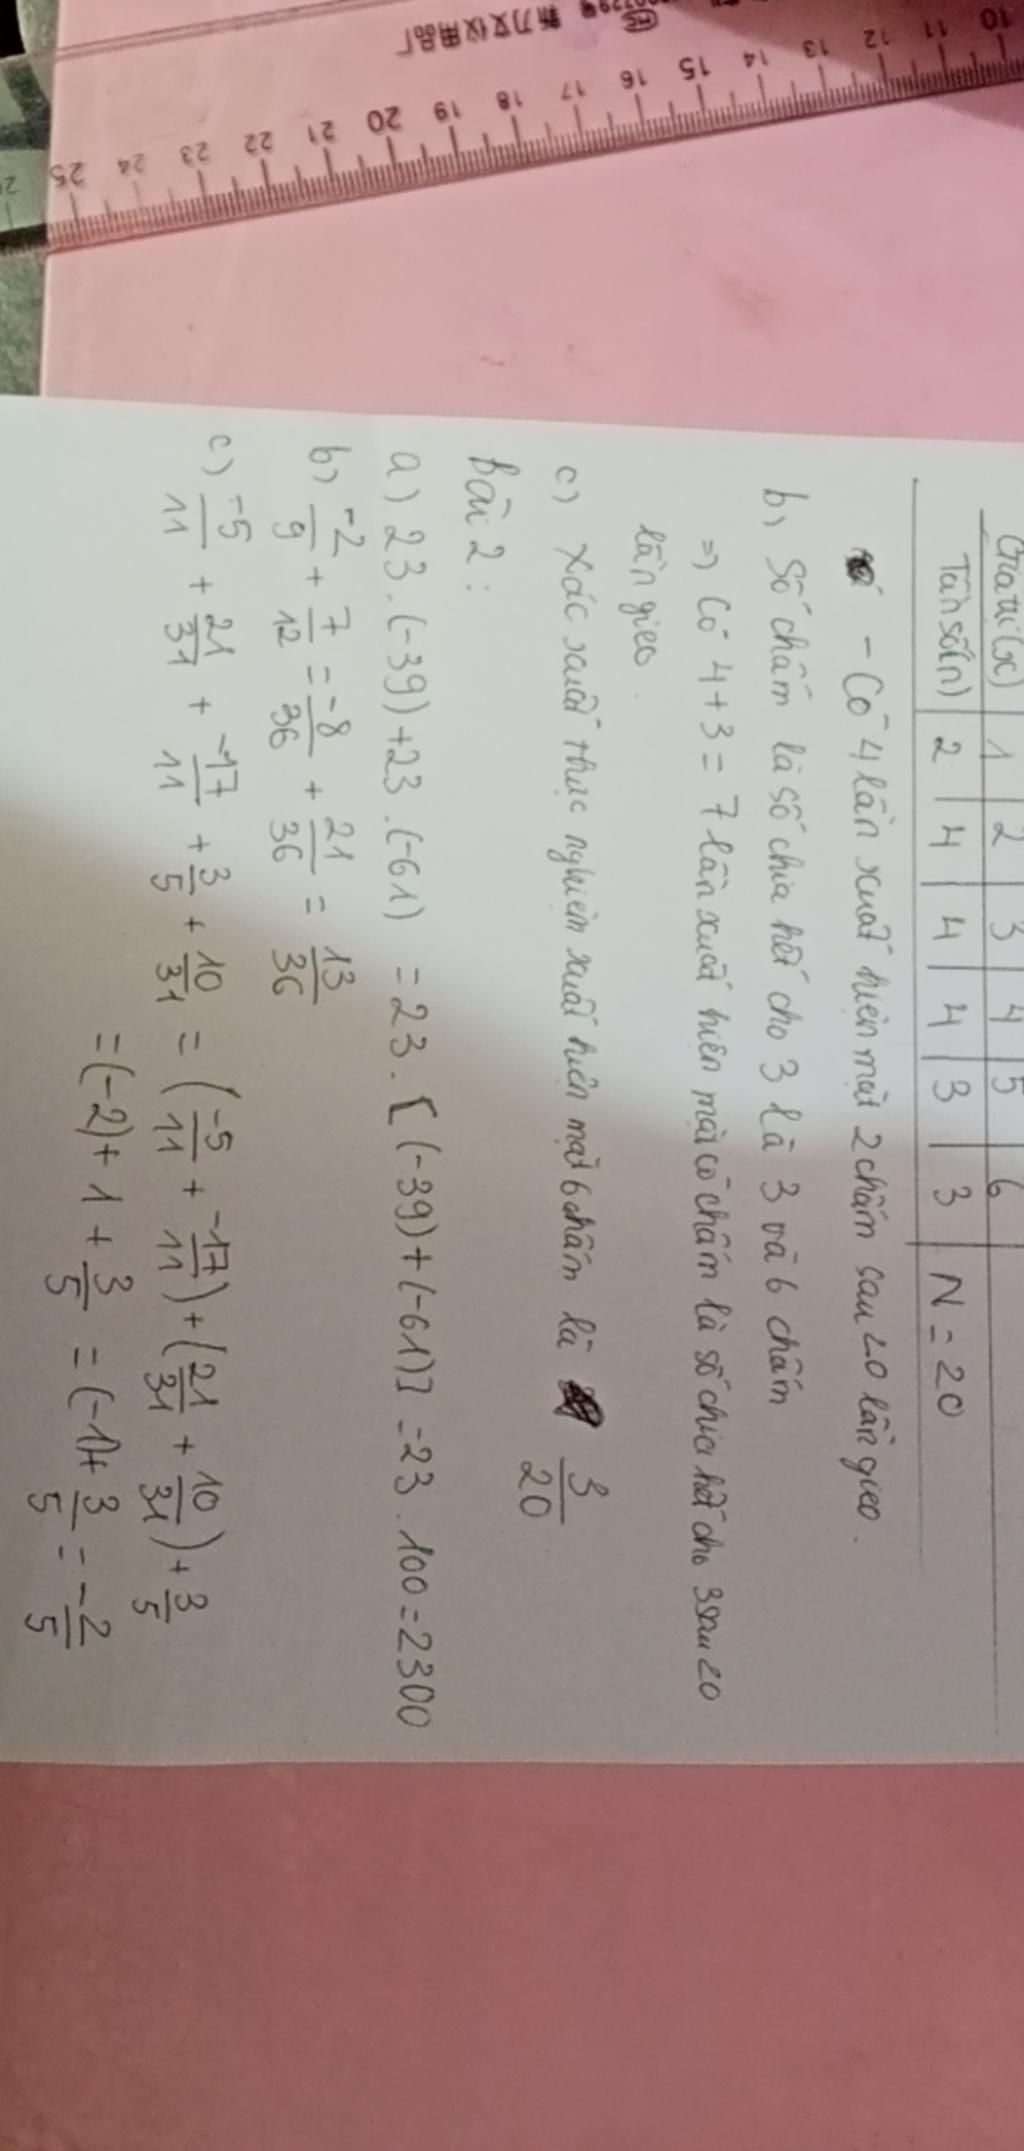 Giá trị (x) 1 2 3 4 5 6
Tần số (n) 2 4 4 4 3 3 N = 20
- Có 4 lần xuất hiện mặt 2 chấm sau 20 lần gieo.
b, Số chấm là số chia hết cho 3 là 3 và 6 chấm
=> Có 4+3 = 7 lần xuất hiện mặt có chấm là số chia hết cho 3 sau 20
lần gieo.
c) Xác xuất thực nghiệm xuất hiện mặt 6 chấm là 3/20
Bài 2:
a) 23.(-39)+23.(-61) = 23.[(-39)+(-61)] = 23.100 = 2300
b) -2/9 + 7/12 = -8/36 + 21/36 = 13/36
c) -5/11 + 21/31 + -17/11 + 3/5 + 10/31 = (-5/11 + -17/11) + (21/31 + 10/31) + 3/5
= (-2) + 1 + 3/5 = (-1) + 3/5 = -2/5
10 11 12 13 14 15 16 17 18 19 20 21 22 23 24 25
新力文仪用品厂